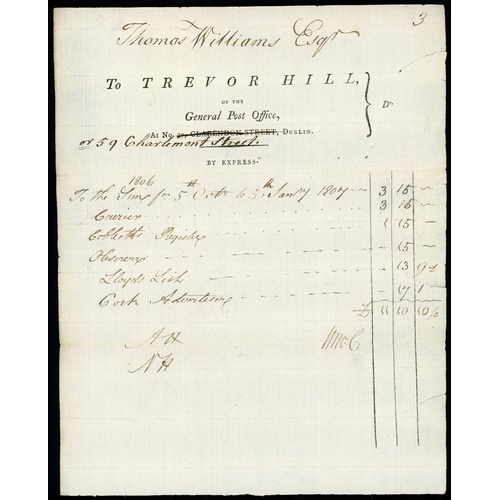 3
Thomas Williams Esqr
To TREVOR HILL,
OF THE
General Post Office, Dr
At No. CLARENDON STREET, DUBLIN.
or 59 Charlemont Street.
BY EXPRESS.
1806
To the Sun for 5th Octr to 5th Jany 1807 — 3 15 —
Courier — 3 15 —
Cobbetts Register 1 15 —
Observer — 15 —
Lloyds List — 13 9
Cork Advertiser 17 1
£ 11 10 10½
A H
N H